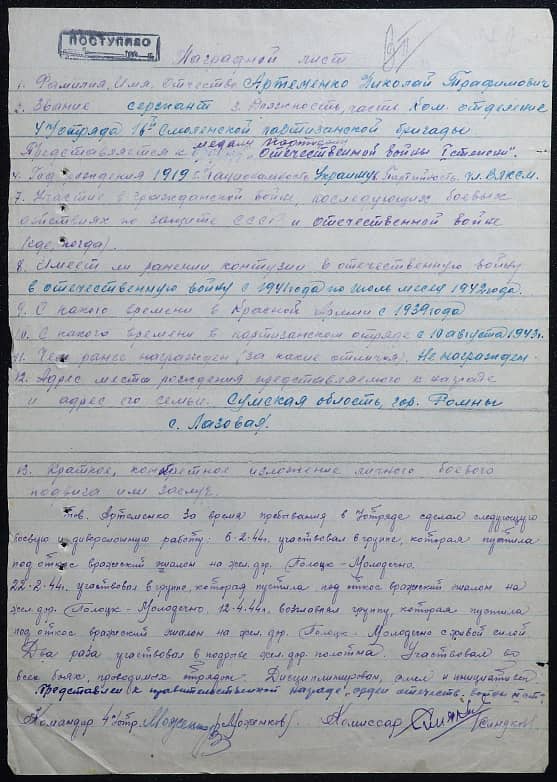 ПОСТУПИЛО
Наградной лист
1. Фамилия, Имя, Отчество Артеменко Николай Трафимович
2. Звание сержант 3. Должность, часть Ком. отделение
4го отряда 16й Смоленской партизанской бригады
медали партизан
Представляется к "Отечественной войны I степени".
4. Год рождения 1919 г. Национальность Украинец Партийность чл. ВЛКСМ.
7. Участие в гражданской войне, последующих боевых
действиях по защите СССР и отечественной войне
(где, когда).
8. Имеет ли ранении контузии в отечественную войну
в отечественную войну с 1941 года по июль месяц 1942 года.
9. С какого времени в Красной Армии с 1939 года
10. С какого времени в партизанском отряде с 10 августа 1943 г.
11. Чем ранее награжден (за какие отличия). Не награжден.
12. Адрес место рождения представляемого к награде
и адрес его семьи. Сумская область, гор. Ромны
с. Лазовая.
13. Краткое, конкретное изложение личного боевого
подвига или заслуг.
тов. Артеменко За время пребывания в отряде сделал следующую
боевую и диверсионную работу: 6-2-44г. участвовал в группе, которая пустила
под откос вражеский эшалон на жел. дор. Полоцк-Молодечно.
22-2-44г. участвовал в группе, которая пустила под откос вражеский эшалон на
жел. дор. Полоцк-Молодечно, 12-4-44г. возглавлял группу, которая пустила
под откос вражеский эшалон на жел. дор. Полоцк-Молодечно с живой силой.
Два раза участвовал в подрыве жел. дор. полотна. Участвовал во
всех боях, проводимых отрядом. Дисциплинирован, смел и инициативен
Представлен к правительственной награде орден отечеств. войны
Командир 4 отр. (Моженков). Комиссар (Синдков)